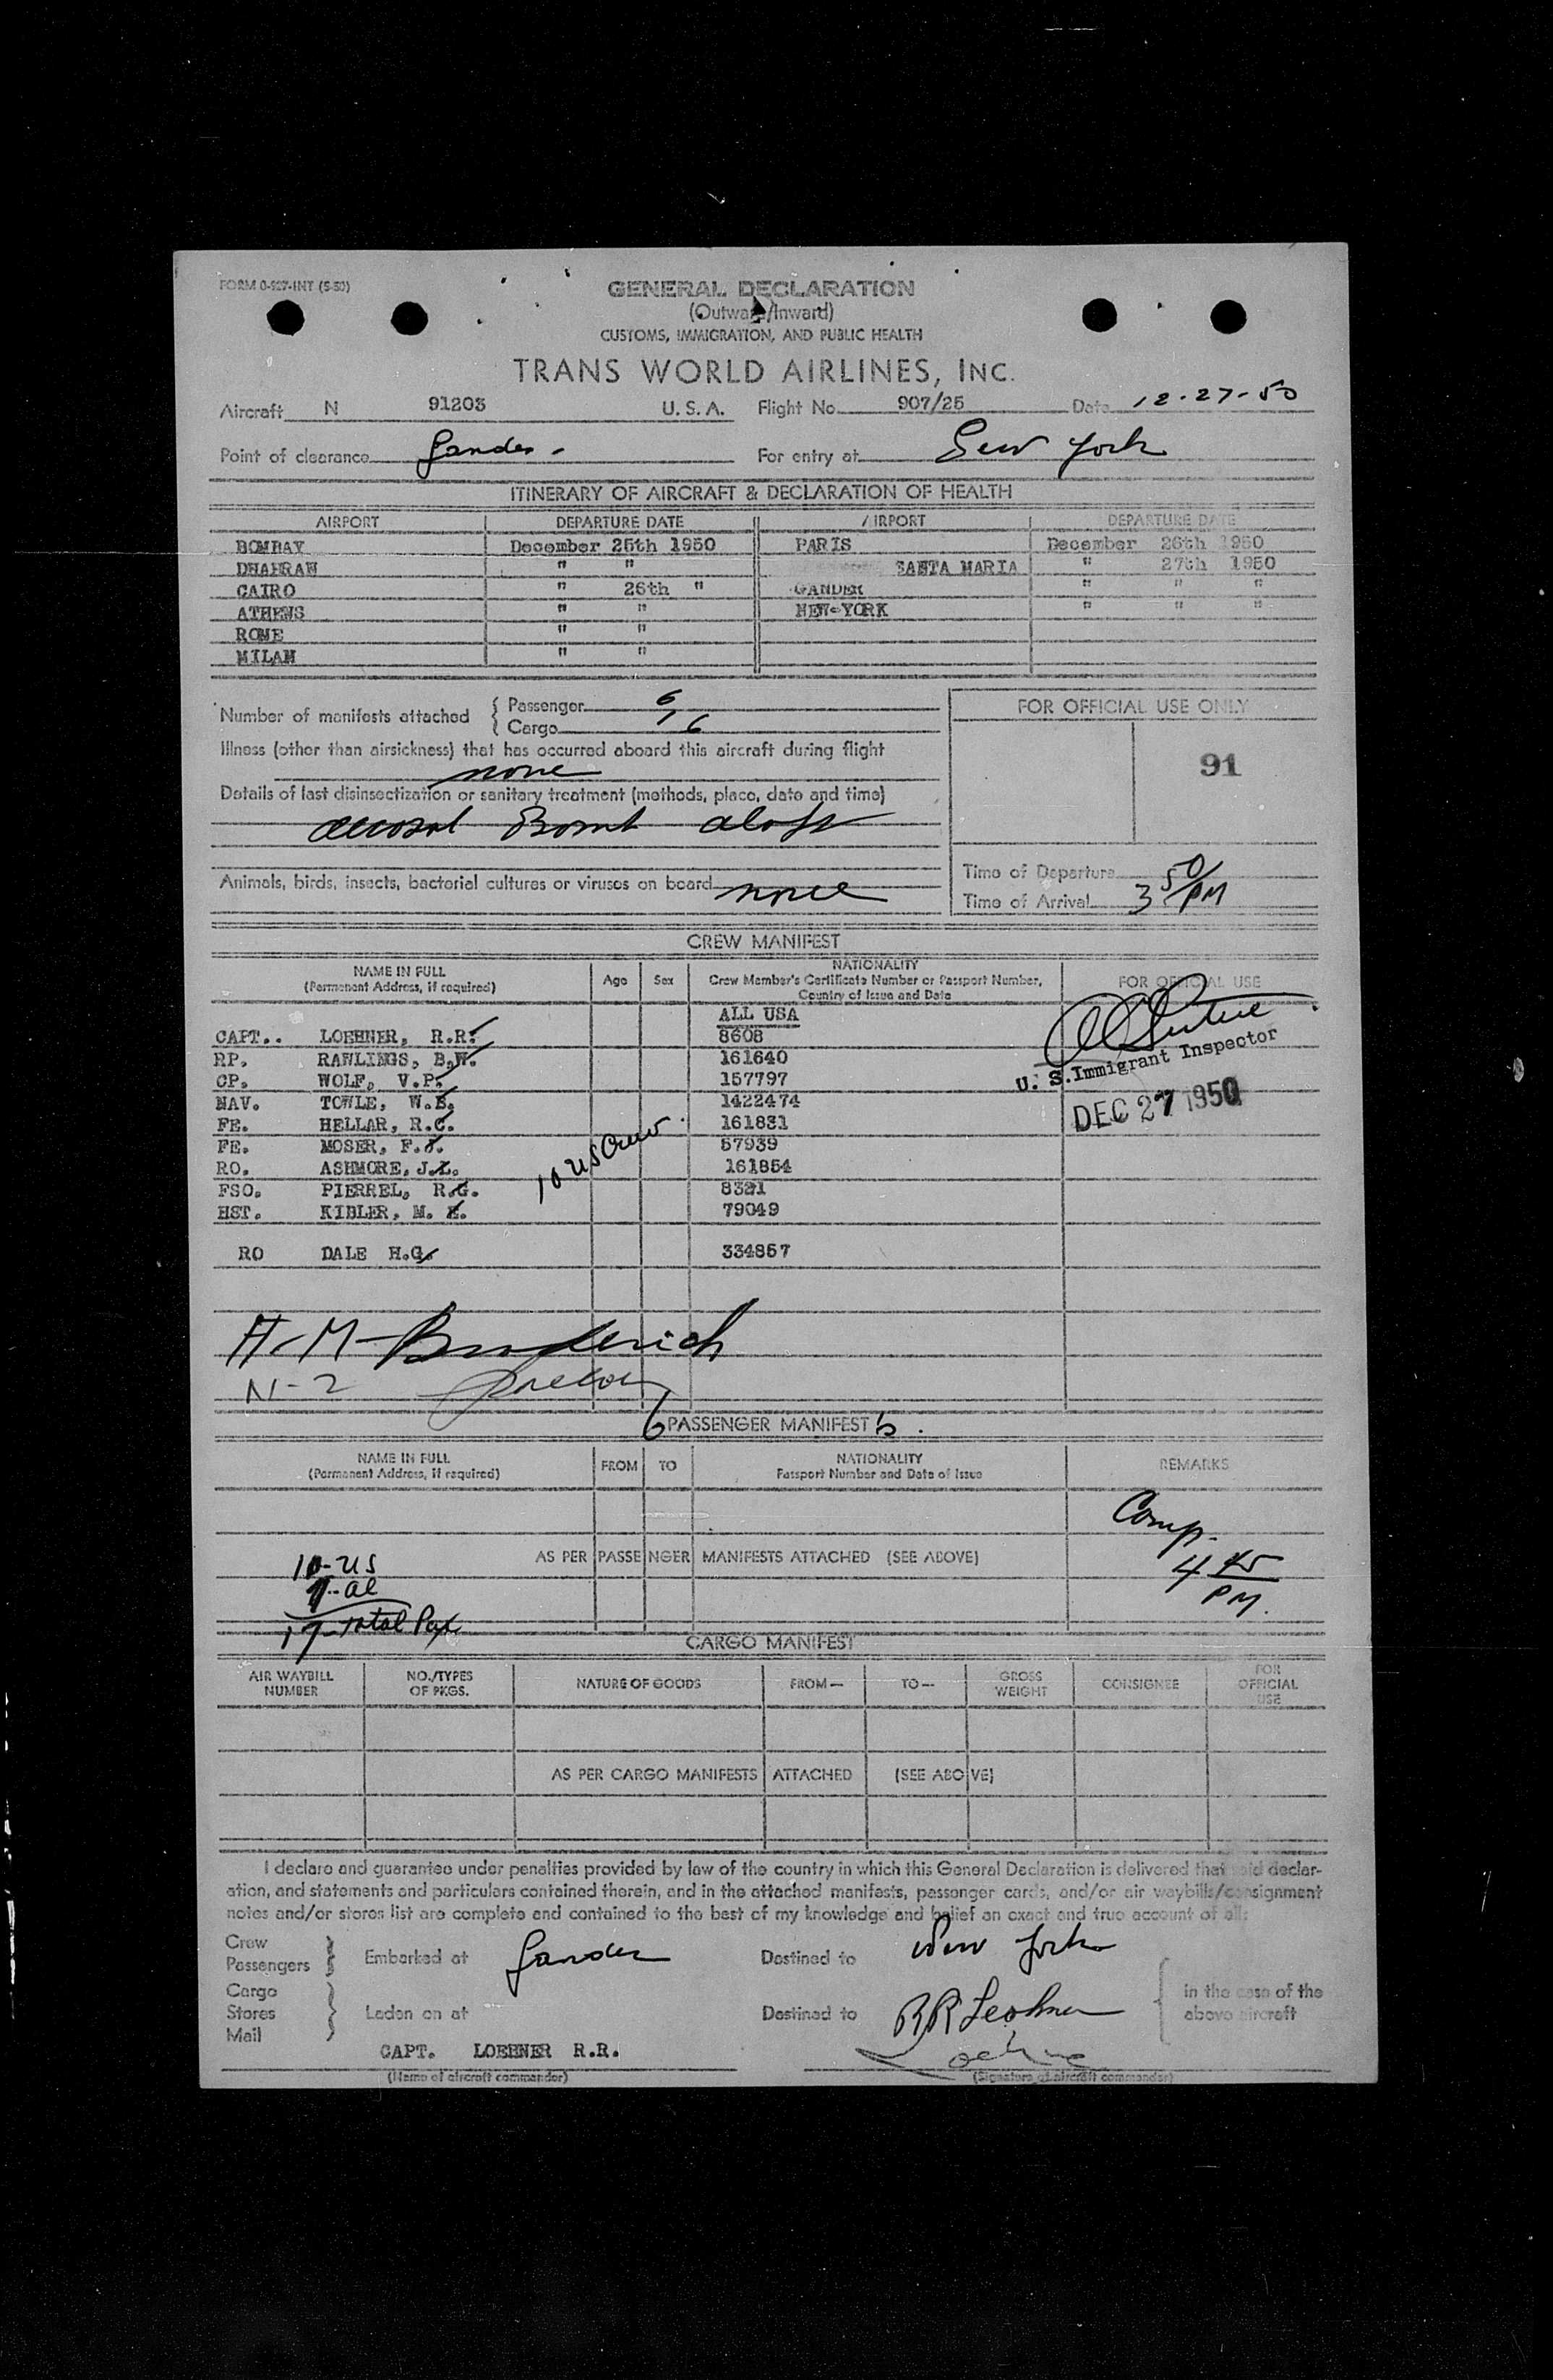 FORM 0-927-INT (5-50)
GENERAL DECLARATION
(Outward/Inward)
CUSTOMS, IMMIGRATION, AND PUBLIC HEALTH
TRANS WORLD AIRLINES, INC.
Aircraft N 91203 U. S. A. Flight No. 907/25 Date 12-27-50
Point of clearance Gander - For entry at New York
ITINERARY OF AIRCRAFT & DECLARATION OF HEALTH
AIRPORT DEPARTURE DATE AIRPORT DEPARTURE DATE
BOMBAY December 25th 1950 PARIS December 26th 1950
DHAHRAN " " SANTA MARIA " 27th 1950
CAIRO " 26th " GANDER " " "
ATHENS " " NEW-YORK " " "
ROME " "
MILAN " "
Number of manifests attached { Passenger 6
{ Cargo 1 6
FOR OFFICIAL USE ONLY
91
Illness (other than airsickness) that has occurred aboard this aircraft during flight
none
Details of last disinsectization or sanitary treatment (methods, place, date and time)
aerosol Bomb aloft
Animals, birds, insects, bacterial cultures or viruses on board none
Time of Departure
Time of Arrival 3 50/PM
CREW MANIFEST
NAME IN FULL (Permanent Address, if required) Age Sex NATIONALITY Crew Member's Certificate Number or Passport Number, Country of Issue and Date FOR OFFICIAL USE
ALL USA
CAPT.. LOEHNER, R.R. 8608
RP. RAWLINGS, B.W. 161640
CP. WOLF, V.P. 157797
NAV. TOWLE, W.B. 1422474
FE. HELLAR, R.C. 161831
FE. MOSER, F.J. 57939
RO. ASHMORE, J.L. 161854
FSO. PIERREL, R.G. 8321
HST. KIBLER, M. E. 79049
RO DALE H.G. 334857
10 US Crew
U. S. Immigrant Inspector
DEC 27 1950
H-M-Broderich
N-2
6 PASSENGER MANIFEST 6.
NAME IN FULL (Permanent Address, if required) FROM TO NATIONALITY Passport Number and Date of Issue REMARKS
Comp.
4 45
PM.
AS PER PASSENGER MANIFESTS ATTACHED (SEE ABOVE)
10-US
7-al
17-Total Pax
CARGO MANIFEST
AIR WAYBILL NUMBER NO./TYPES OF PKGS. NATURE OF GOODS FROM— TO— GROSS WEIGHT CONSIGNEE FOR OFFICIAL USE
AS PER CARGO MANIFESTS ATTACHED (SEE ABOVE)
I declare and guarantee under penalties provided by law of the country in which this General Declaration is delivered that said declar-
ation, and statements and particulars contained therein, and in the attached manifests, passenger cards, and/or air waybills/consignment
notes and/or stores list are complete and contained to the best of my knowledge and belief an exact and true account of all:
Crew
Passengers } Embarked at Gander Destined to New York
Cargo
Stores } Laden on at Destined to { in the case of the above aircraft
Mail
RR Leohner
CAPT. LOEHNER R.R.
(Name of aircraft commander) (Signature of aircraft commander)